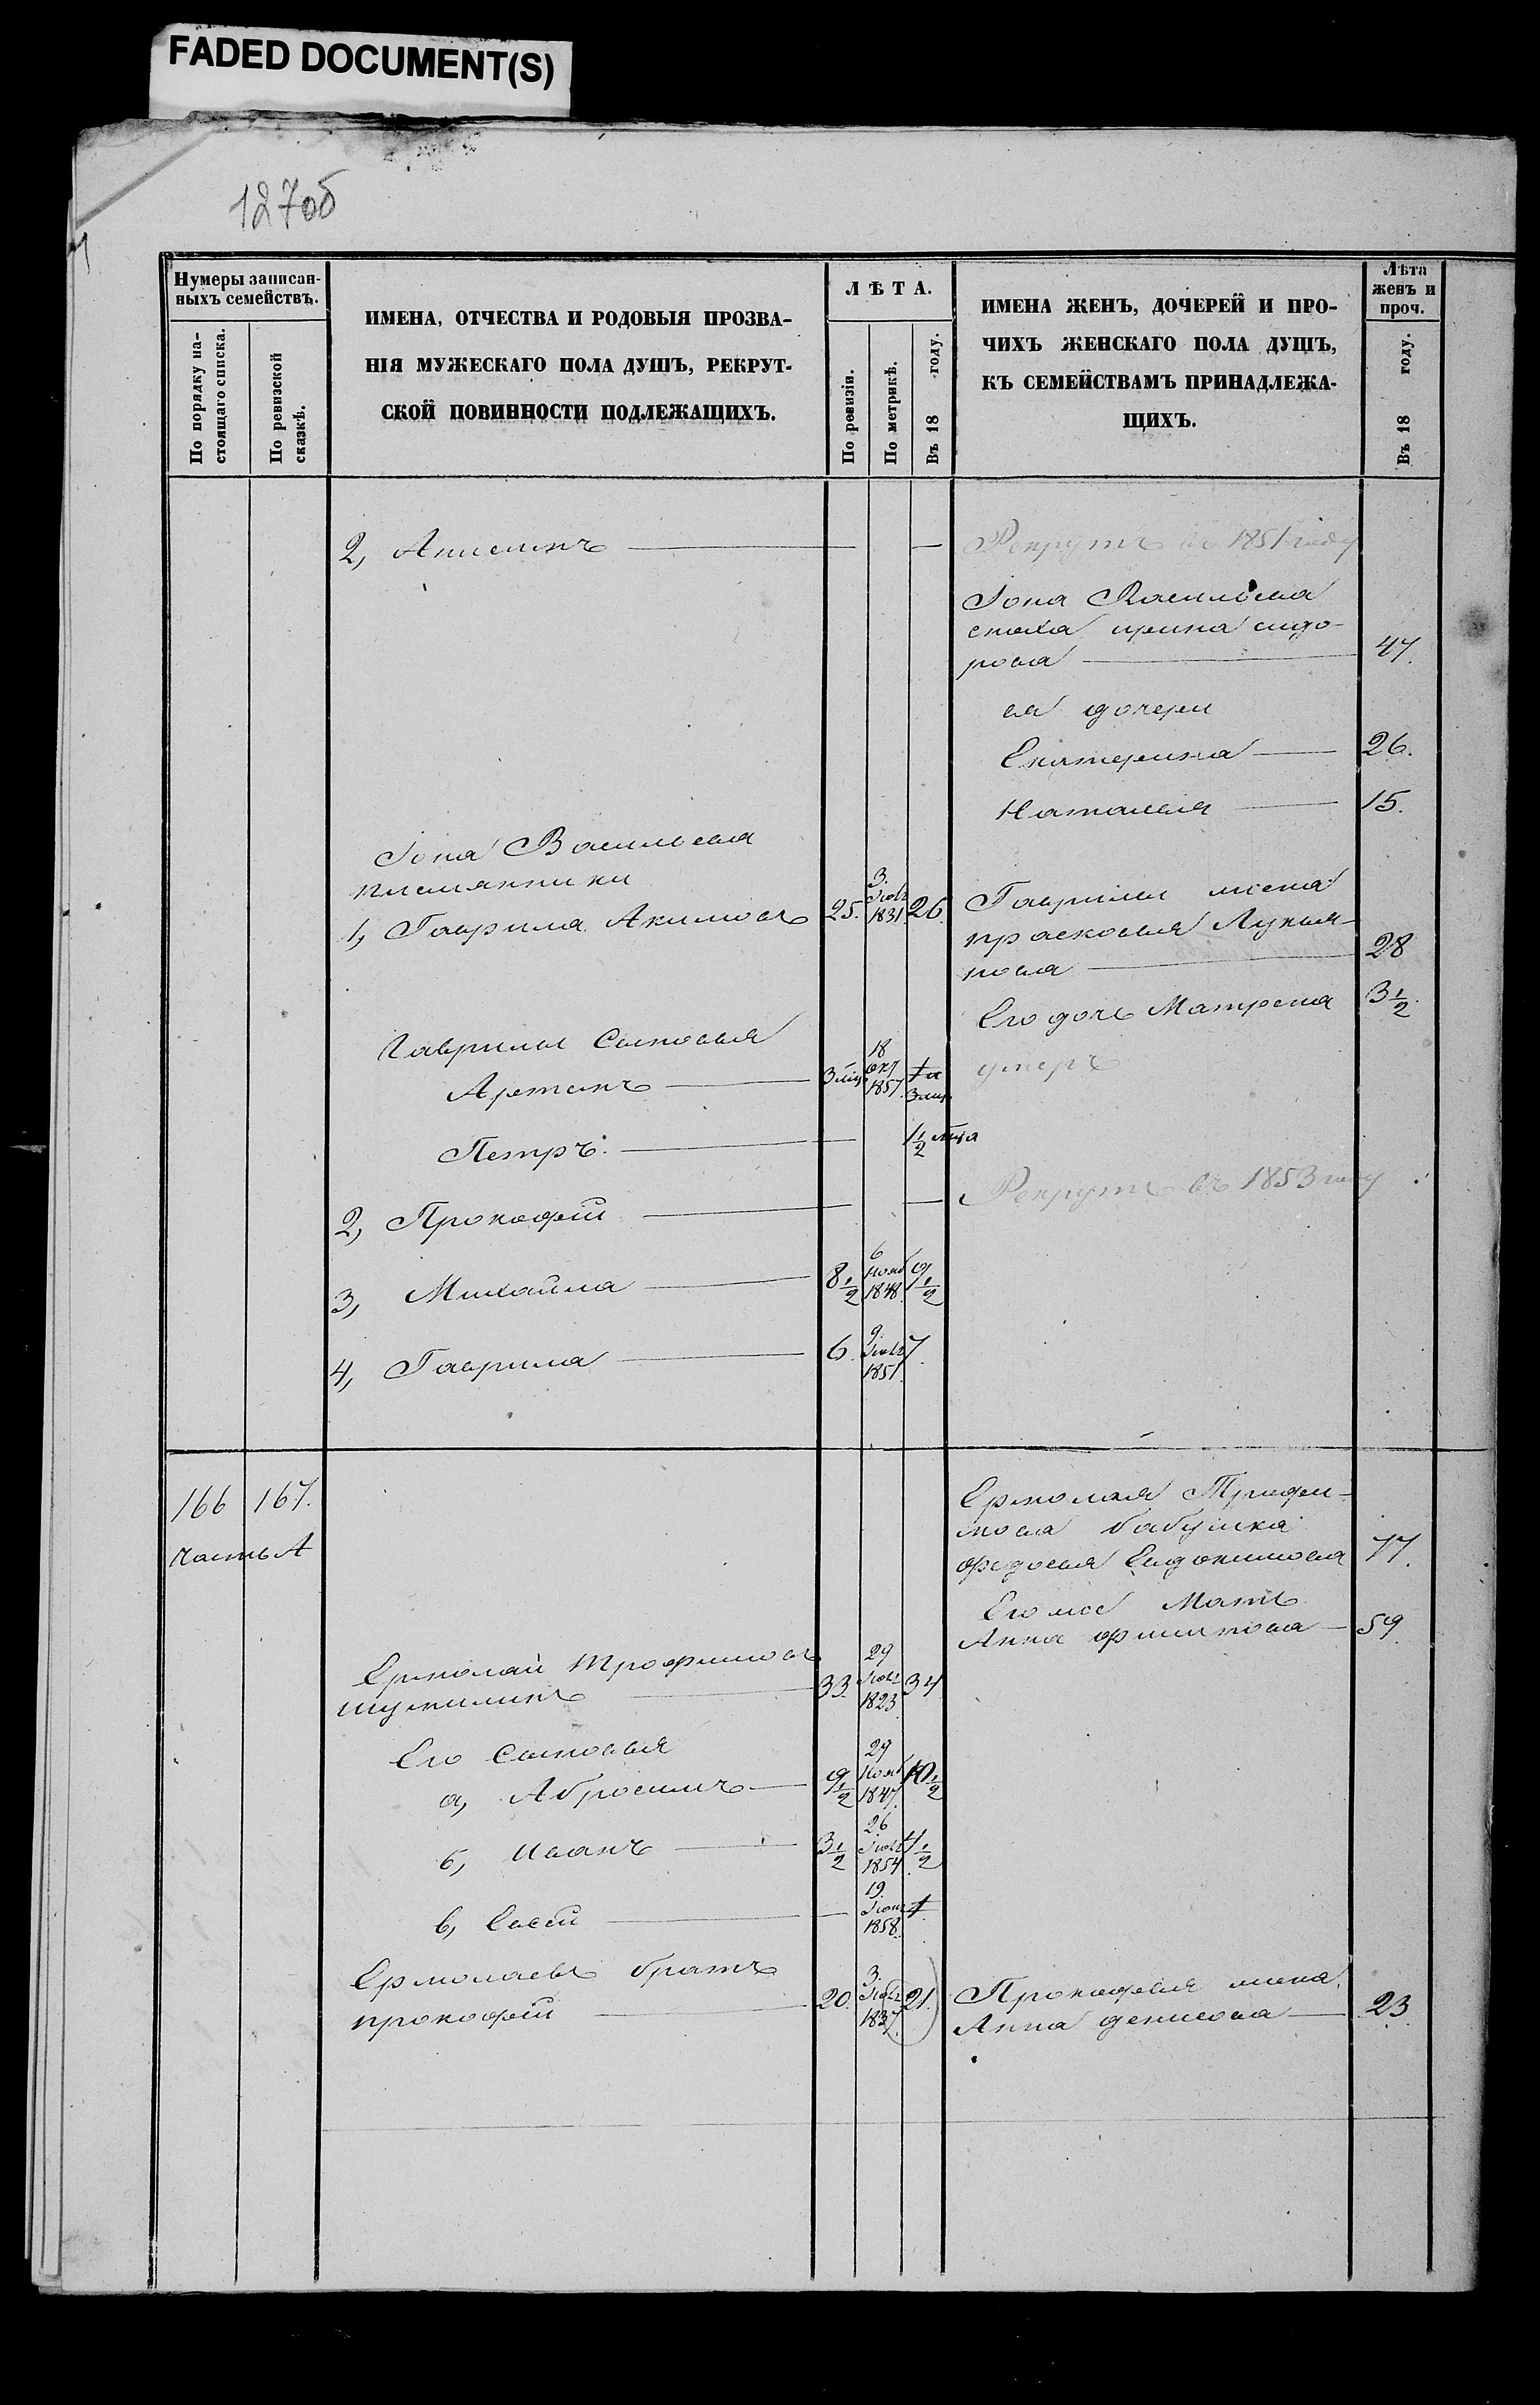 FADED DOCUMENT(S)
127об
Нумеры записан-
ныхъ семействъ.
По порядку на-
стоящаго списка.
По ревизской
сказкѣ.
ИМЕНА, ОТЧЕСТВА И РОДОВЫЯ ПРОЗВА-
НІЯ МУЖЕСКАГО ПОЛА ДУШЪ, РЕКРУТ-
СКОЙ ПОВИННОСТИ ПОДЛЕЖАЩИХЪ.
ЛѢТА.
По ревизіи.
По метрикѣ.
Въ 18 году.
ИМЕНА ЖЕНЪ, ДОЧЕРЕЙ И ПРО-
ЧИХЪ ЖЕНСКАГО ПОЛА ДУШЪ,
КЪ СЕМЕЙСТВАМЪ ПРИНАДЛЕЖА-
ЩИХЪ.
Лѣта
женъ и
проч.
Въ 18 году.
2, Анисимъ — — Рекрутъ въ 1851 году
Іона Васильева
сноха ирина сидо-
рова — 47.
ея дочери
Екатерина — 26.
Наталья — 15.
Іона Васильева
племянники
1, Гаврила Акимовъ 25. 3. Іюль 1831 26.
Гаврилы жена
прасковья Лукья-
нова — 28
Его дочь Матрена 3 1/2.
Гаврилы Сыновья
Артемъ — 18 окт 1857 умеръ
Петръ. — 1 1/2
2, Прокофій — — Рекрутъ въ 1853 году
3, Михайла — 8 1/2 6 нояб 1848. 9 1/2
4, Гаврила — 6. 9. Іюль 1851. 7.
166 167.
часть А
Ермолая Трофи-
мова бабушка
федосья Евдокимова 77.
Его же Мать
Анна филипова — 59.
Ермолай Трофимовъ
— 33. 29 Іюль 1823. 34
Его Сыновья
а, Абросимъ — 9 1/2 29 Нояб 1847. 10 1/2
б, Иванъ — 3 1/2 26 Іюль 1854 4 1/2
в, Евсей — — 19. 1858.
Ермолаевъ братъ
прокофій — 20. 3. Іюль 1837. 21.
Прокофья жена
Анна денисова — 23